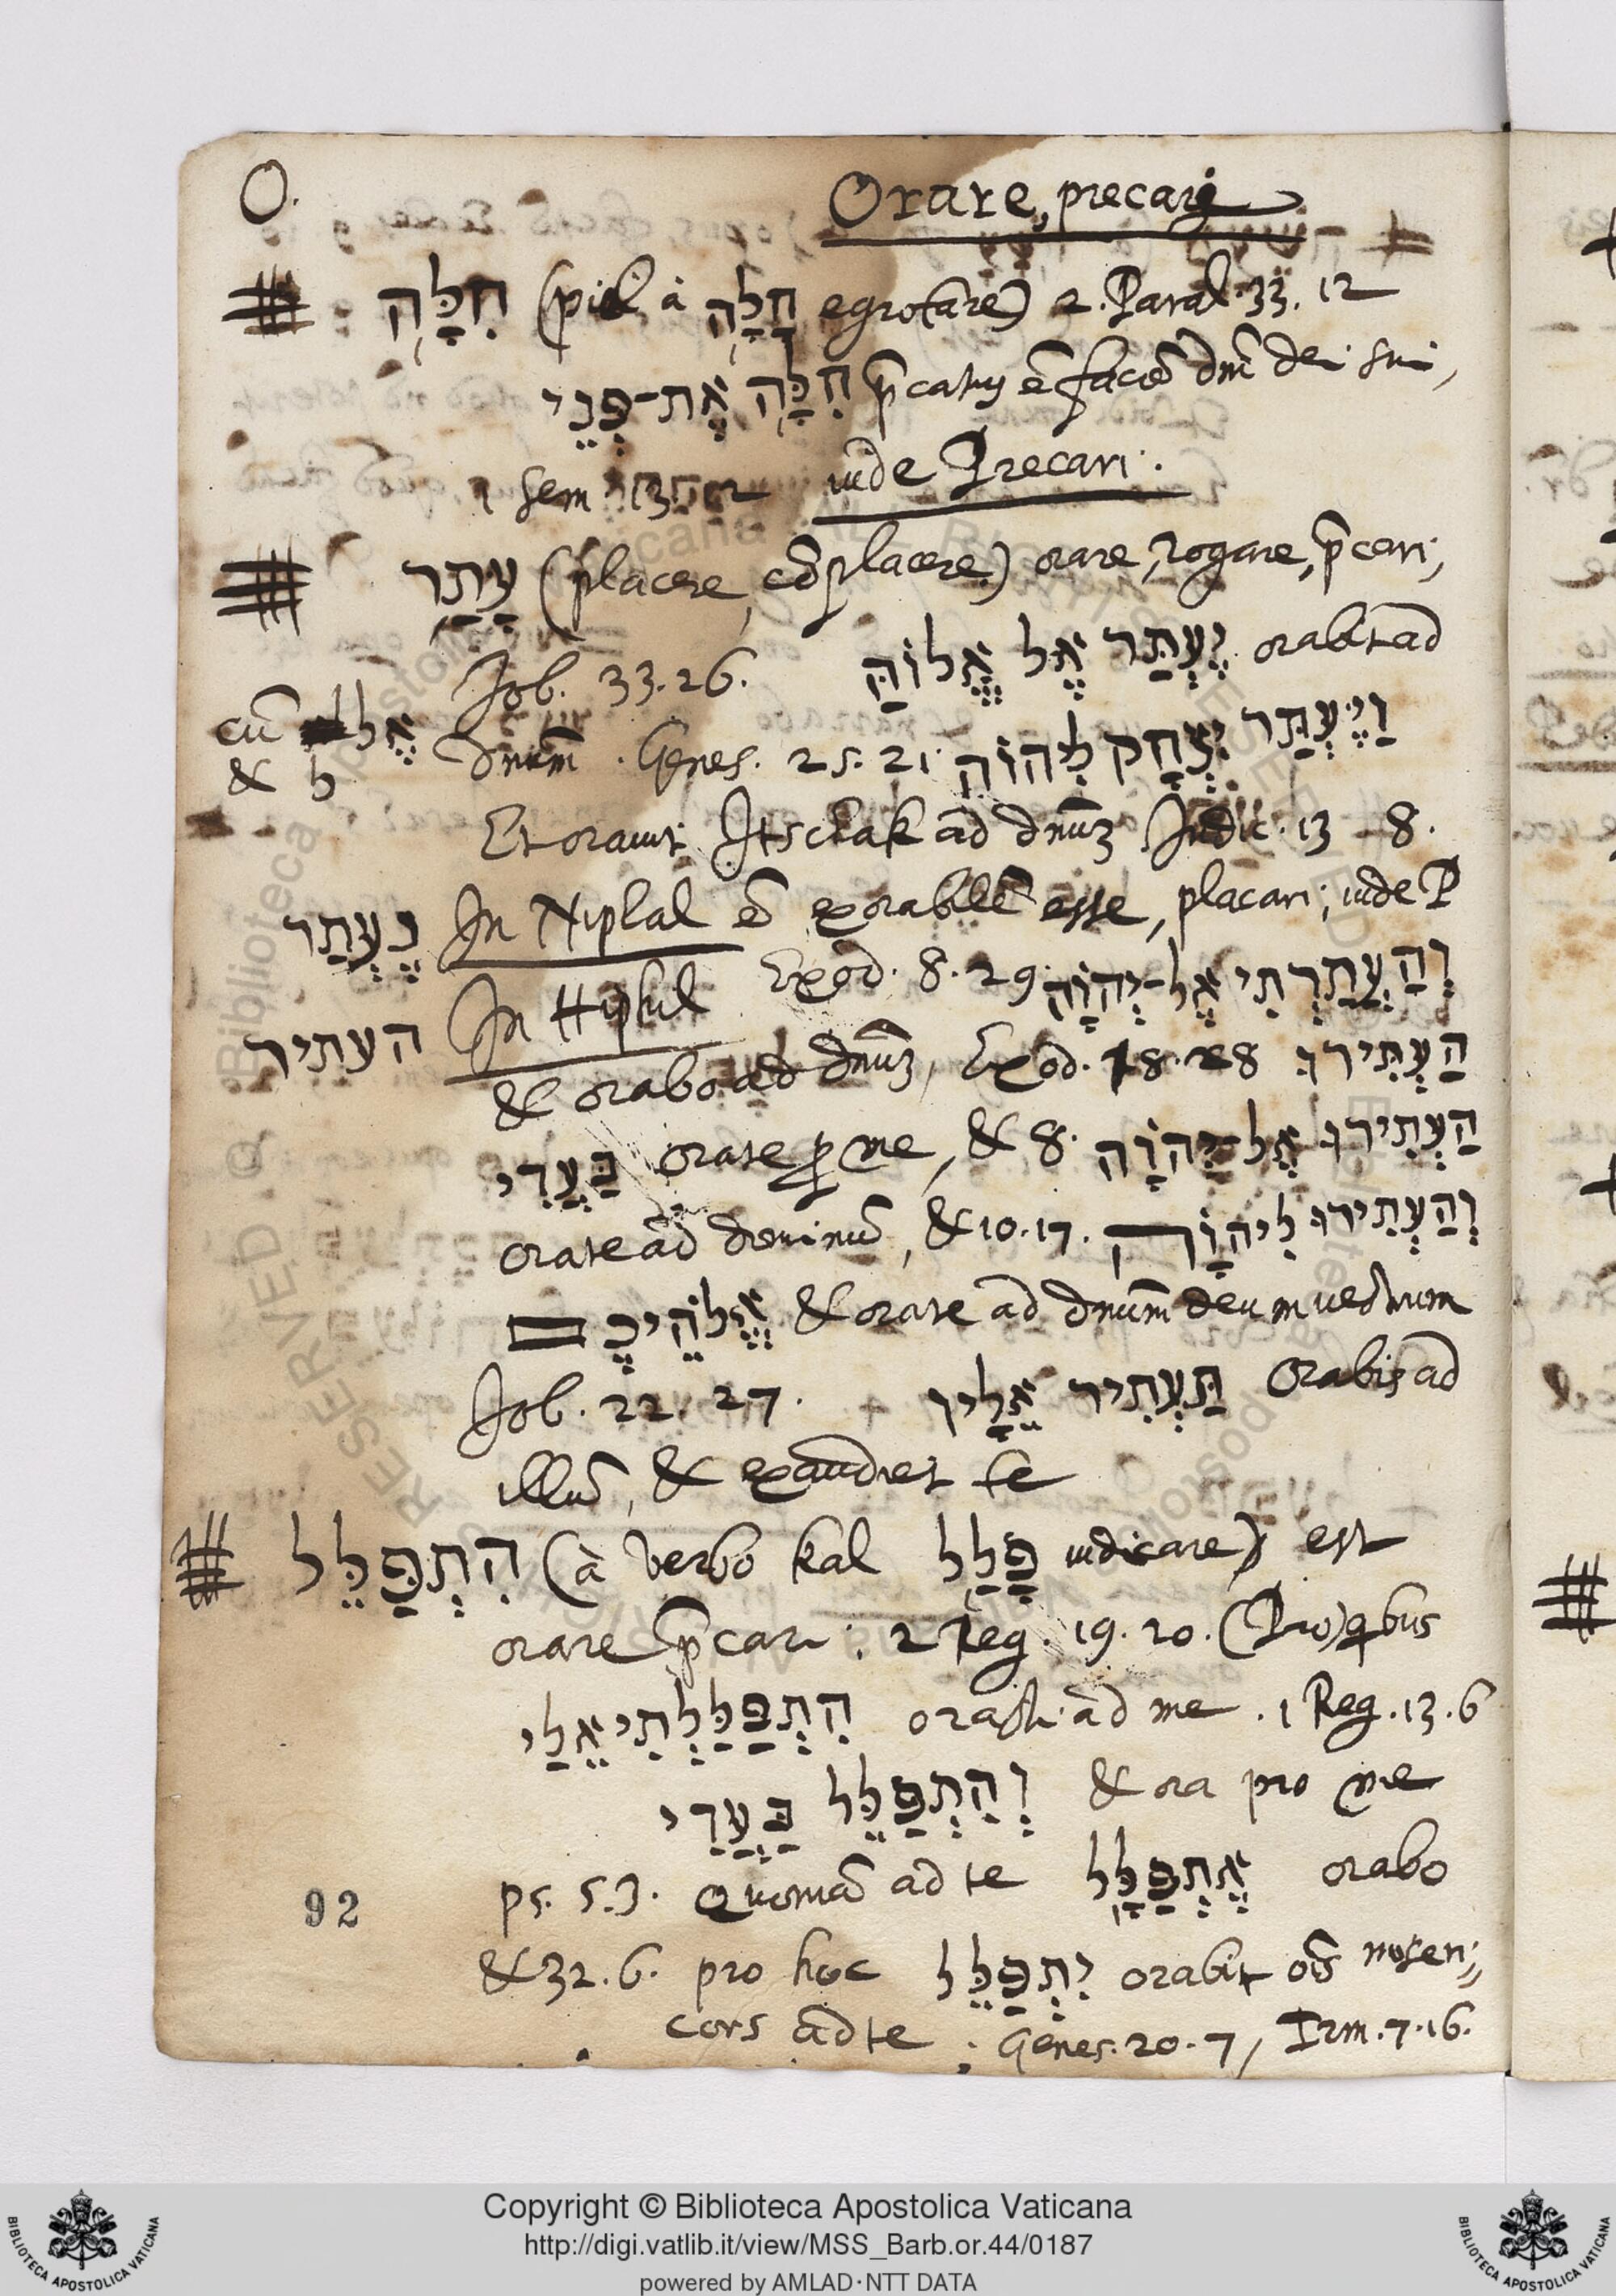 O. Orare, precari
חִלָּה (piel à חָלָה egrotare) 2. Paral. 33. 12
חִלָּה אֶת-פְּנֵי p̄catus ē faciē dnī dei sui,
1 Sem 13. 12 uide Precari.
עָתַר (placere, cōplacere) orare, rogare, p̄cari,
Job. 33. 26. יֶעְתַּר אֶל אֱלוֹהַּ orabit ad
cū אֶל Dnum̄. Genes. 25. 21. וַיֶּעְתַּר יִצְחָק לַיהוֹה
& ל
Et orauit Itschak ad dnūʒ Judic. 13 8.
נֶעְתַר In Niphal ē exorabilē esse, placari, uide P
העתיר In Hiphil Exod. 8. 29. וְהַעְתַּרְתִּי אֶל-יְהוָֹה
& orabo ad dnūʒ, Exod. 8. 28 הַעְתִּירוּ
בַּעֲדִי orate p me, & 8. הַעְתִּירוּ אֶל-יַהוָֹה
orate ad dominū, & 10. 17. וְהַעְתִּירוּ לַיהוָֹה
אֱלֹהֵיכֶם & orate ad dnum̄ deum uestrum
Job. 22. 27. תַּעְתִּיר אֵלָיו Orabis ad
illū, & exaudiet te
הִתְפַּלֵּל (à verbo kal פָּלַל iudicare) est
orare p̄cari: 2 Reg. 19. 20. (Pro) qbus
הִתְפַּלַּלְתִּי אֵלַי orasti ad me. 1 Reg. 13. 6
וְהִתְפַּלֵּל בַּעֲדִי & ora pro me
ps. 5. 3. Quoniā ad te אֶתְפַּלָּל orabo
92
& 32. 6. pro hoc יִתְפַּלֵּל orabit oīs
cors ad te: Genes. 20. 7, Irm. 7. 16.
Copyright © Biblioteca Apostolica Vaticana
http://digi.vatlib.it/view/MSS_Barb.or.44/0187
powered by AMLAD·NTT DATA
BIBLIOTECA APOSTOLICA VATICANA
BIBLIOTECA APOSTOLICA VATICANA